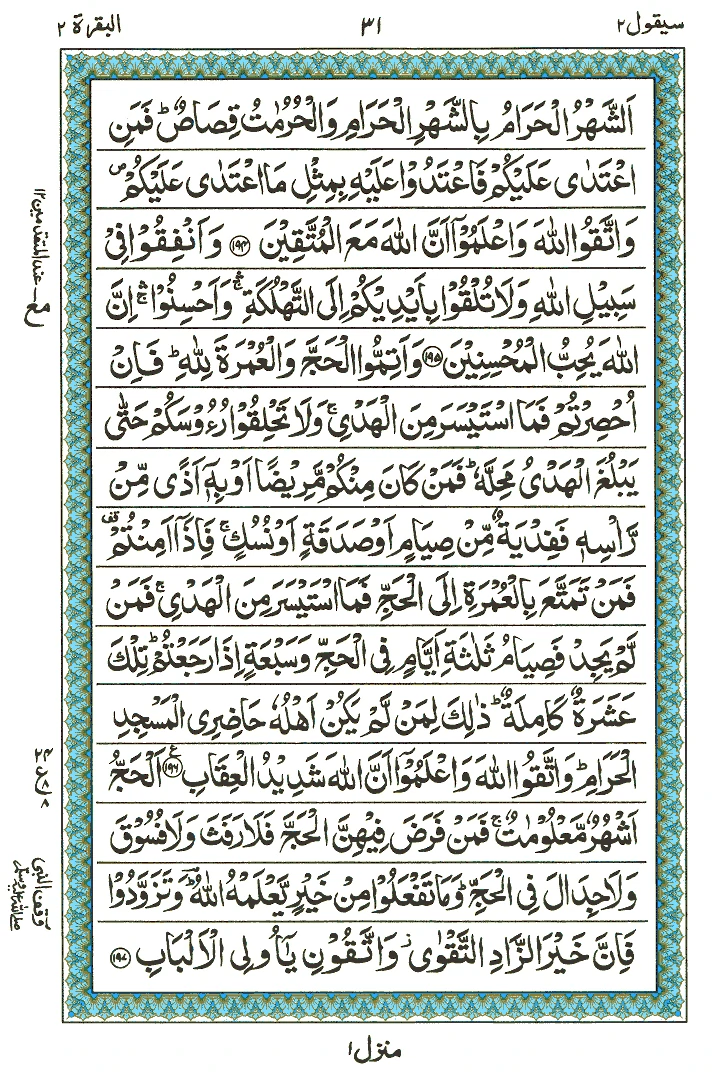 سيقول ٢
٣١
البقرة ٢
اَلشَّهْرُ الْحَرَامُ بِالشَّهْرِ الْحَرَامِ وَالْحُرُمٰتُ قِصَاصٌ ؕ فَمَنِ
اعْتَدٰى عَلَيْكُمْ فَاعْتَدُوْا عَلَيْهِ بِمِثْلِ مَا اعْتَدٰى عَلَيْكُمْ ۪
وَاتَّقُوا اللّٰهَ وَاعْلَمُوْۤا اَنَّ اللّٰهَ مَعَ الْمُتَّقِيْنَ ﴿۱۹۴﴾ وَاَنْفِقُوْا فِىْ
سَبِيْلِ اللّٰهِ وَلَا تُلْقُوْا بِاَيْدِيْكُمْ اِلَى التَّهْلُكَةِ ۛۚ وَاَحْسِنُوْا ۛۚ اِنَّ
اللّٰهَ يُحِبُّ الْمُحْسِنِيْنَ ﴿۱۹۵﴾ وَاَتِمُّوا الْحَجَّ وَالْعُمْرَةَ لِلّٰهِ ؕ فَاِنْ
اُحْصِرْتُمْ فَمَا اسْتَيْسَرَ مِنَ الْهَدْىِ ۚ وَلَا تَحْلِقُوْا رُءُوْسَكُمْ حَتّٰى
يَبْلُغَ الْهَدْىُ مَحِلَّهٗ ؕ فَمَنْ كَانَ مِنْكُمْ مَّرِيْضًا اَوْ بِهٖۤ اَذًى مِّنْ
رَّاْسِهٖ فَفِدْيَةٌ مِّنْ صِيَامٍ اَوْ صَدَقَةٍ اَوْ نُسُكٍ ۚ فَاِذَاۤ اَمِنْتُمْ ۥ قف
فَمَنْ تَمَتَّعَ بِالْعُمْرَةِ اِلَى الْحَجِّ فَمَا اسْتَيْسَرَ مِنَ الْهَدْىِ ۚ فَمَنْ
لَّمْ يَجِدْ فَصِيَامُ ثَلٰثَةِ اَيَّامٍ فِى الْحَجِّ وَسَبْعَةٍ اِذَا رَجَعْتُمْ ؕ تِلْكَ
عَشَرَةٌ كَامِلَةٌ ؕ ذٰلِكَ لِمَنْ لَّمْ يَكُنْ اَهْلُهٗ حَاضِرِى الْمَسْجِدِ
الْحَرَامِ ؕ وَاتَّقُوا اللّٰهَ وَاعْلَمُوْۤا اَنَّ اللّٰهَ شَدِيْدُ الْعِقَابِ ﴿۱۹۶﴾ اَلْحَجُّ
اَشْهُرٌ مَّعْلُوْمٰتٌ ۚ فَمَنْ فَرَضَ فِيْهِنَّ الْحَجَّ فَلَا رَفَثَ وَلَا فُسُوْقَ
وَلَا جِدَالَ فِى الْحَجِّ ؕ وَمَا تَفْعَلُوْا مِنْ خَيْرٍ يَّعْلَمْهُ اللّٰهُ ؕ وَتَزَوَّدُوْا
فَاِنَّ خَيْرَ الزَّادِ التَّقْوٰى ۫ وَاتَّقُوْنِ يٰۤاُولِى الْاَلْبَابِ ﴿۱۹۷﴾
مع عند المتقدمين ١٢
وقف النبي صلى الله عليه وسلم
منزل ١